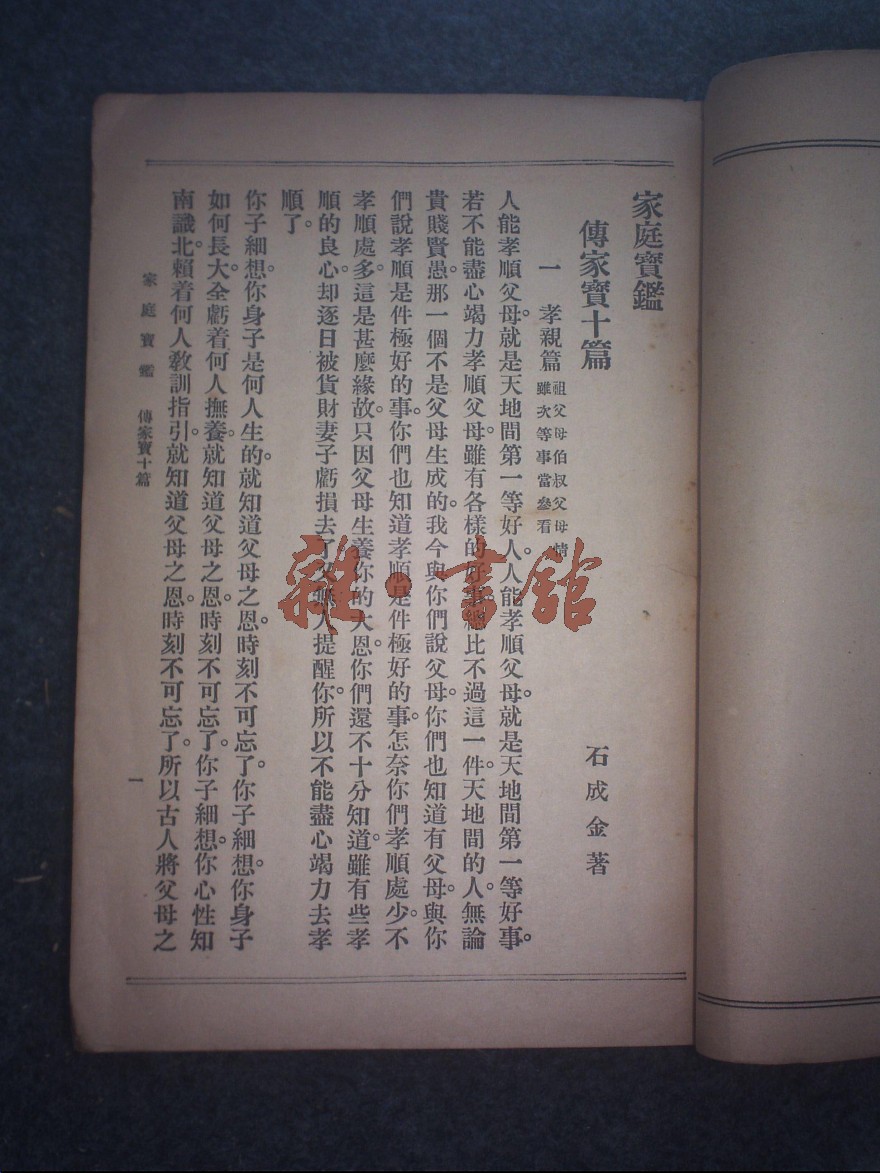 家庭寶鑑
傳家寶十篇
石成金著
一 孝親篇 祖父母伯叔父母情
雖次等事當參看
人能孝順父母。就是天地間第一等好人。人能孝順父母。就是天地間第一等好事。
若不能盡心竭力孝順父母。雖有各樣的好事。總比不過這一件。天地間的人。無論
貴賤賢愚。那一個不是父母生成的。我今與你們說父母。你們也知道有父母。與你
們說孝順是件極好的事。你們也知道孝順是件極好的事。怎奈你們孝順處少。不
孝順處多。這是甚麼緣故。只因父母生養你的大恩。你們還不十分知道。雖有些孝
順的良心。却逐日被貨財妻子虧損去了。又無人提醒你。所以不能盡心竭力去孝
順了。
你子細想。你身子是何人生的。就知道父母之恩。時刻不可忘了。你子細想。你身子
如何長大。全虧着何人撫養。就知道父母之恩。時刻不可忘了。你子細想。你心性知
南識北。賴着何人教訓指引。就知道父母之恩。時刻不可忘了。所以古人將父母之
家庭寶鑑 傳家寶十篇 一
雜·書館